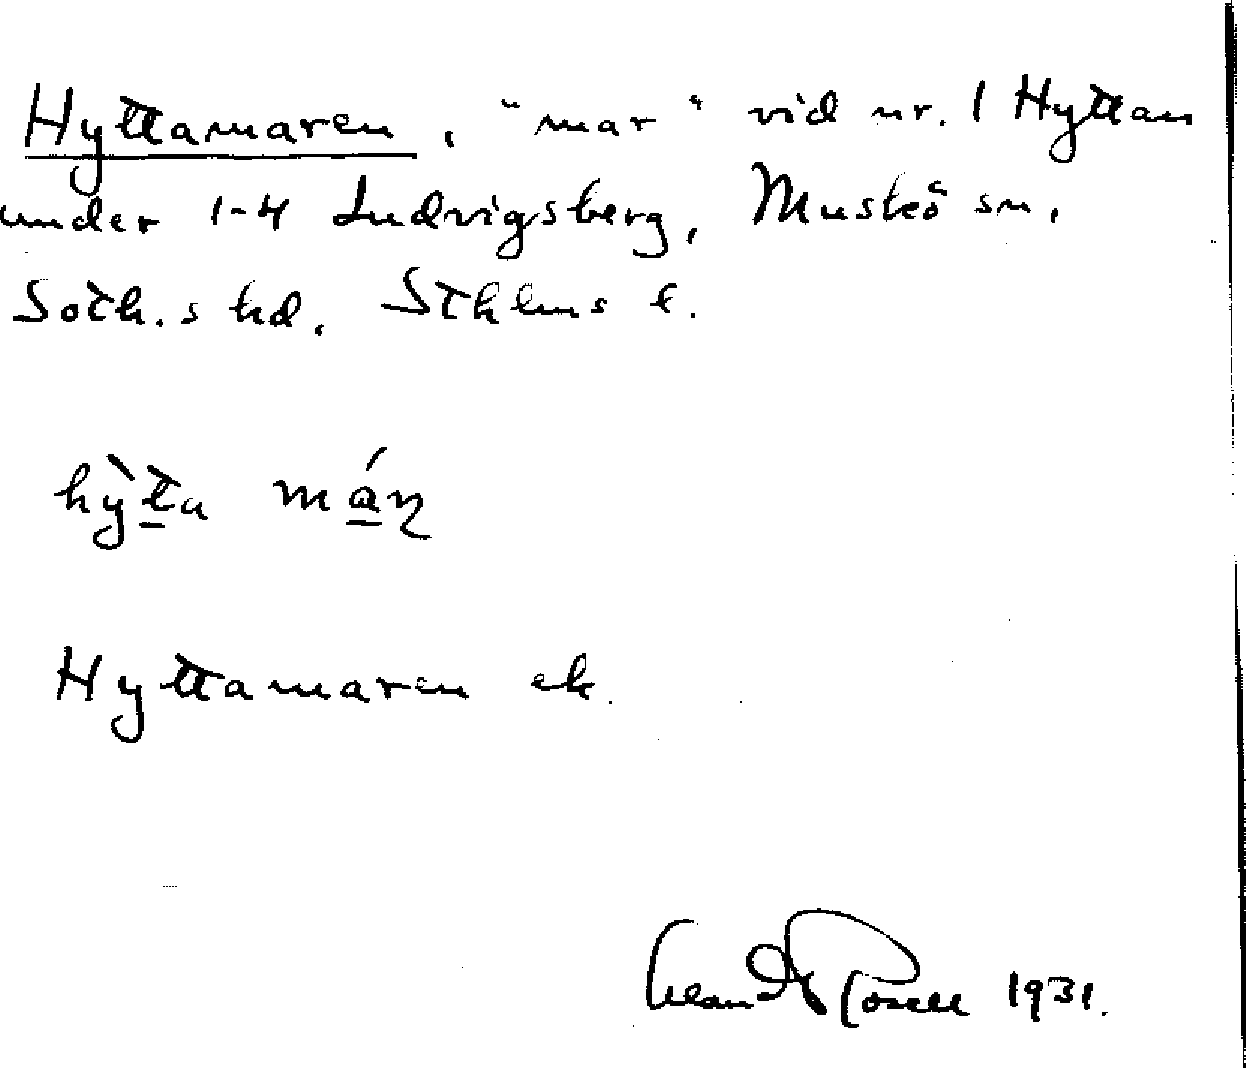 Hyttamaren, "mar" vid nr. 1 Hyttan
under 1-4 Ludvigsberg, Muskö sn,
Soth.s hd, Sthlms l.
hỳta máɳ
Hyttamaren ek.
Rosell 1931.